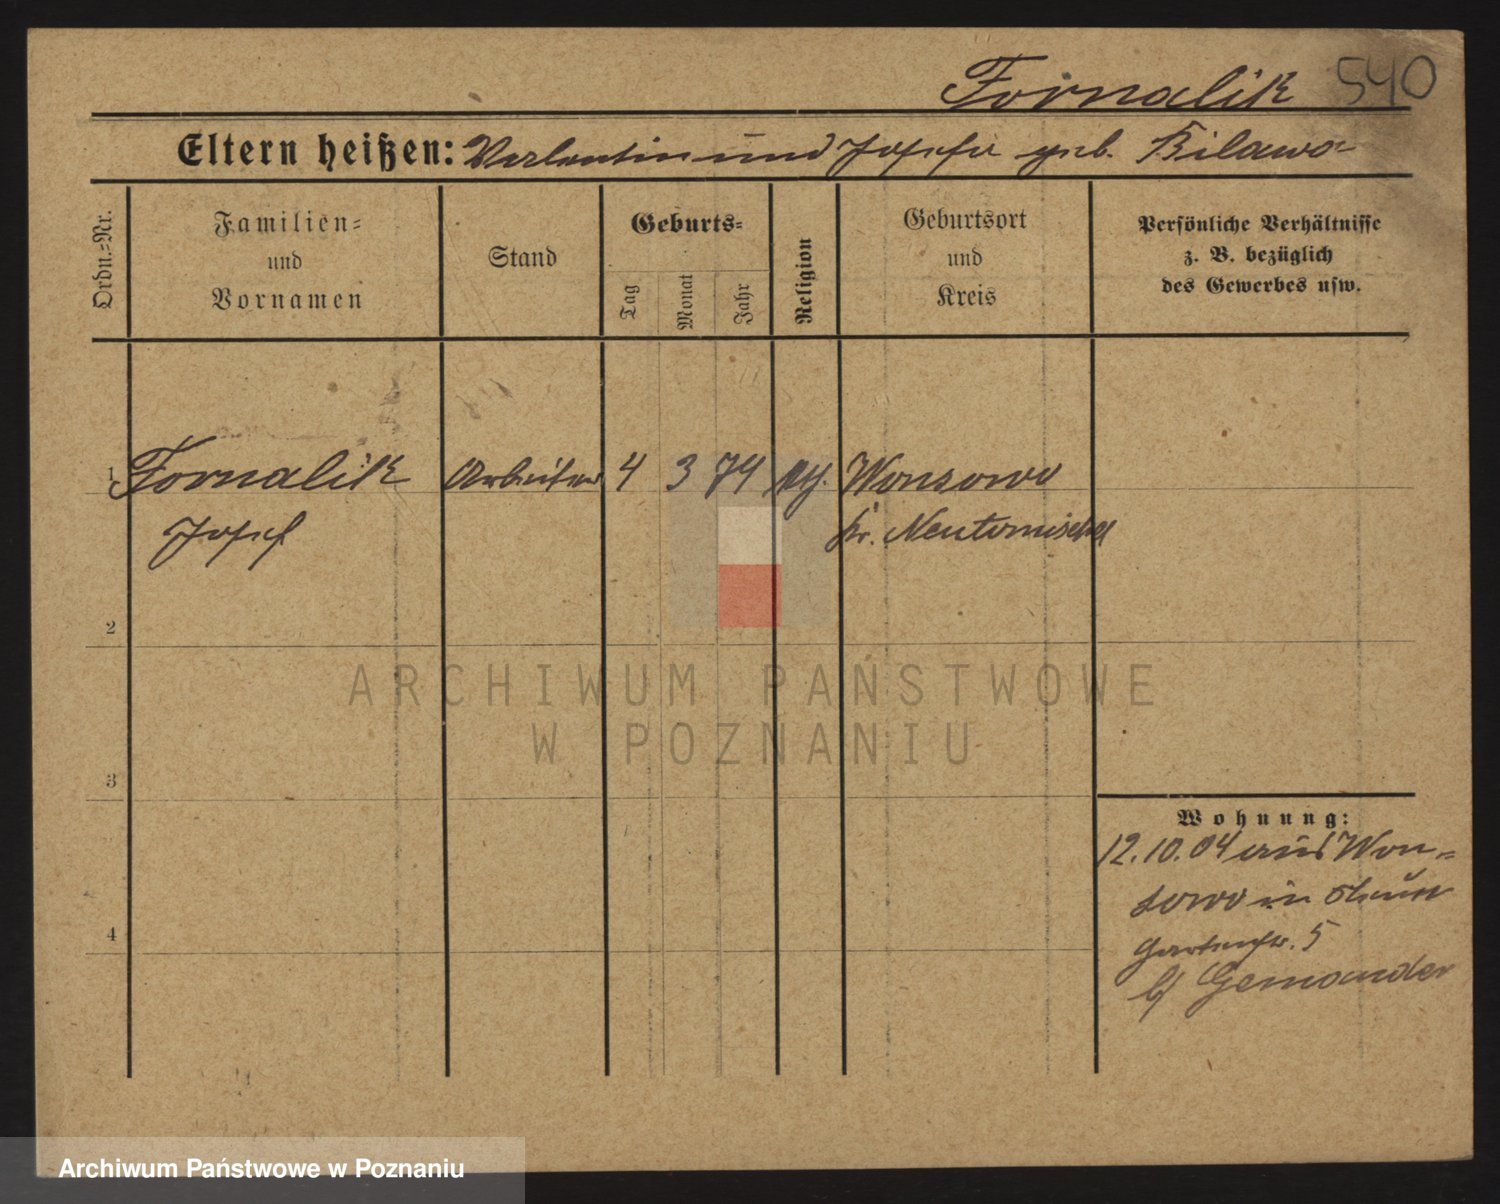 Fornalik 540
Eltern heißen: Valentin und Josefa geb. Bilawa
Ordn.-Nr.
Familien-
und
Vornamen
Stand
Geburts-
Tag
Monat
Jahr
Religion
Geburtsort
und
Kreis
Persönliche Verhältnisse
z. B. bezüglich
des Gewerbes usw.
1 Fornalik Arbeiter 4 3 74 Wonsowo
Josef Kr. Neutomischel
2
3
4
Wohnung:
12.10.04 aus Won-
sowo in
Gartenstr. 5
b/ Gemander
ARCHIWUM PAŃSTWOWE
W POZNANIU
Archiwum Państwowe w Poznaniu